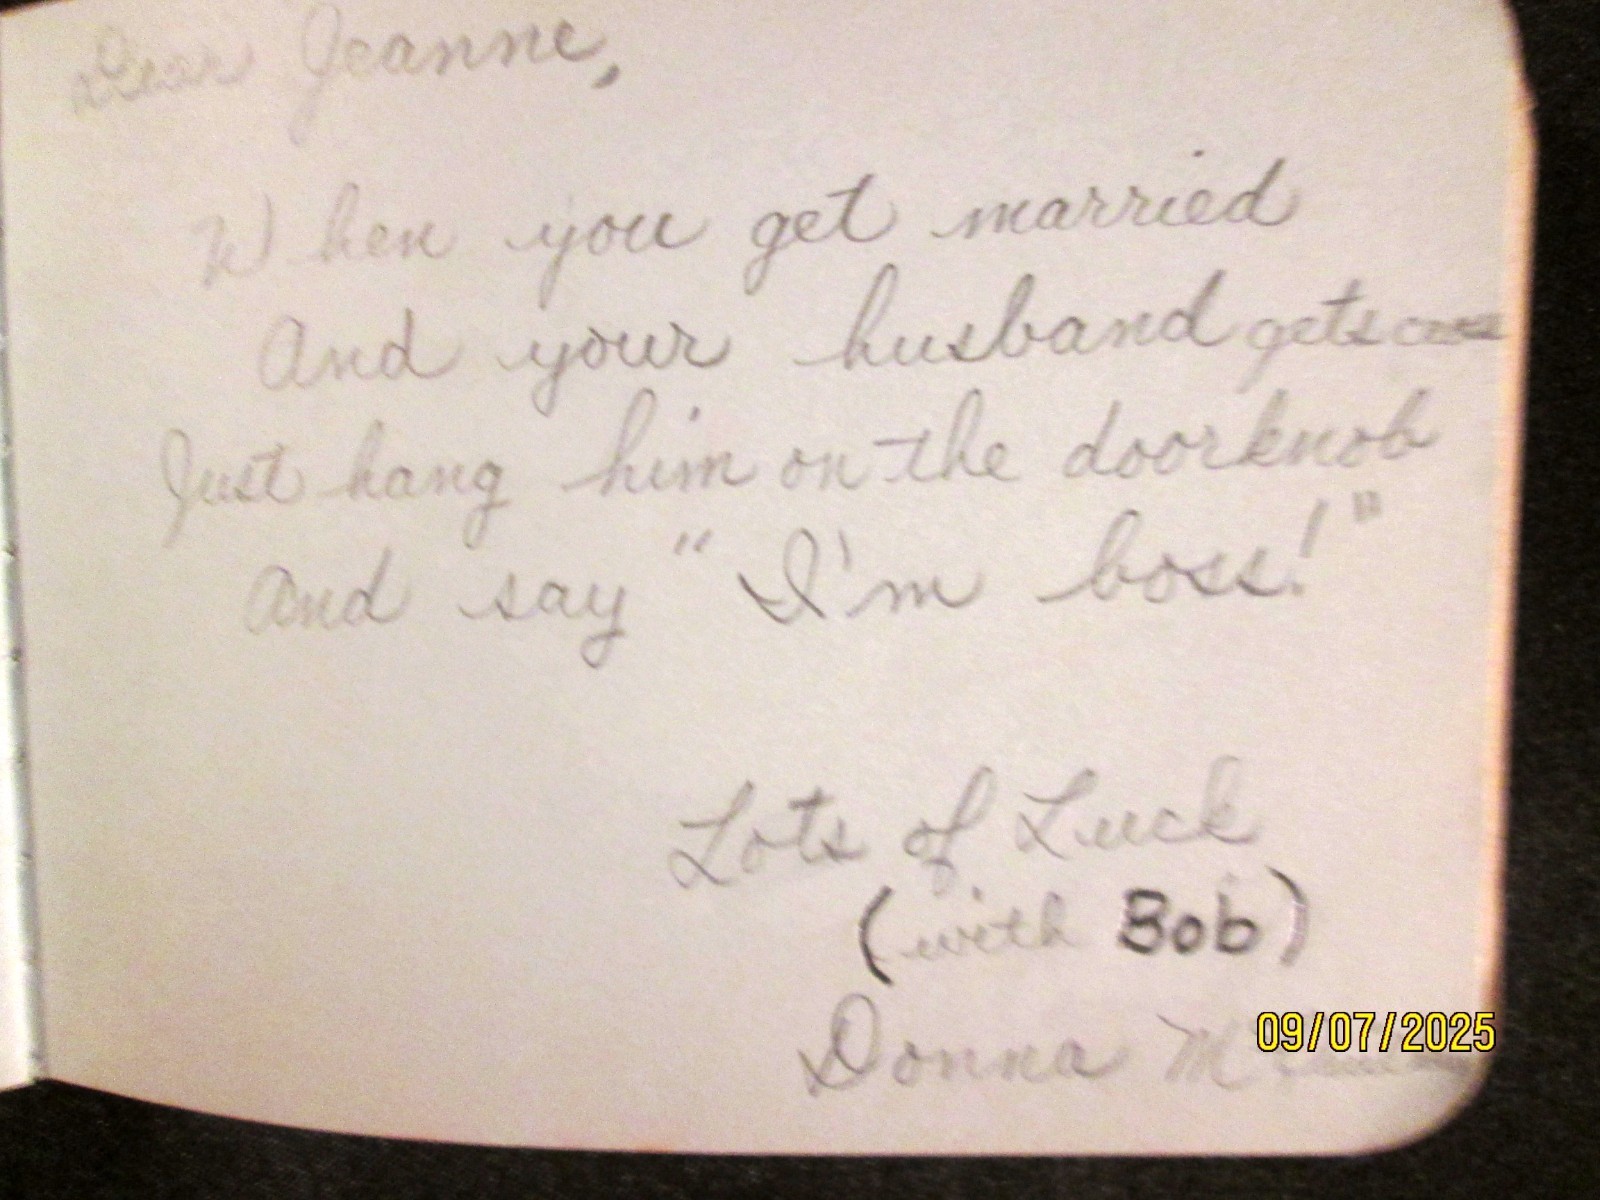 Dear Jeanne,
When you get married
And your husband gets cross
Just hang him on the doorknob
And say "I'm boss!"
Lots of Luck
(with Bob)
Donna
09/07/2025